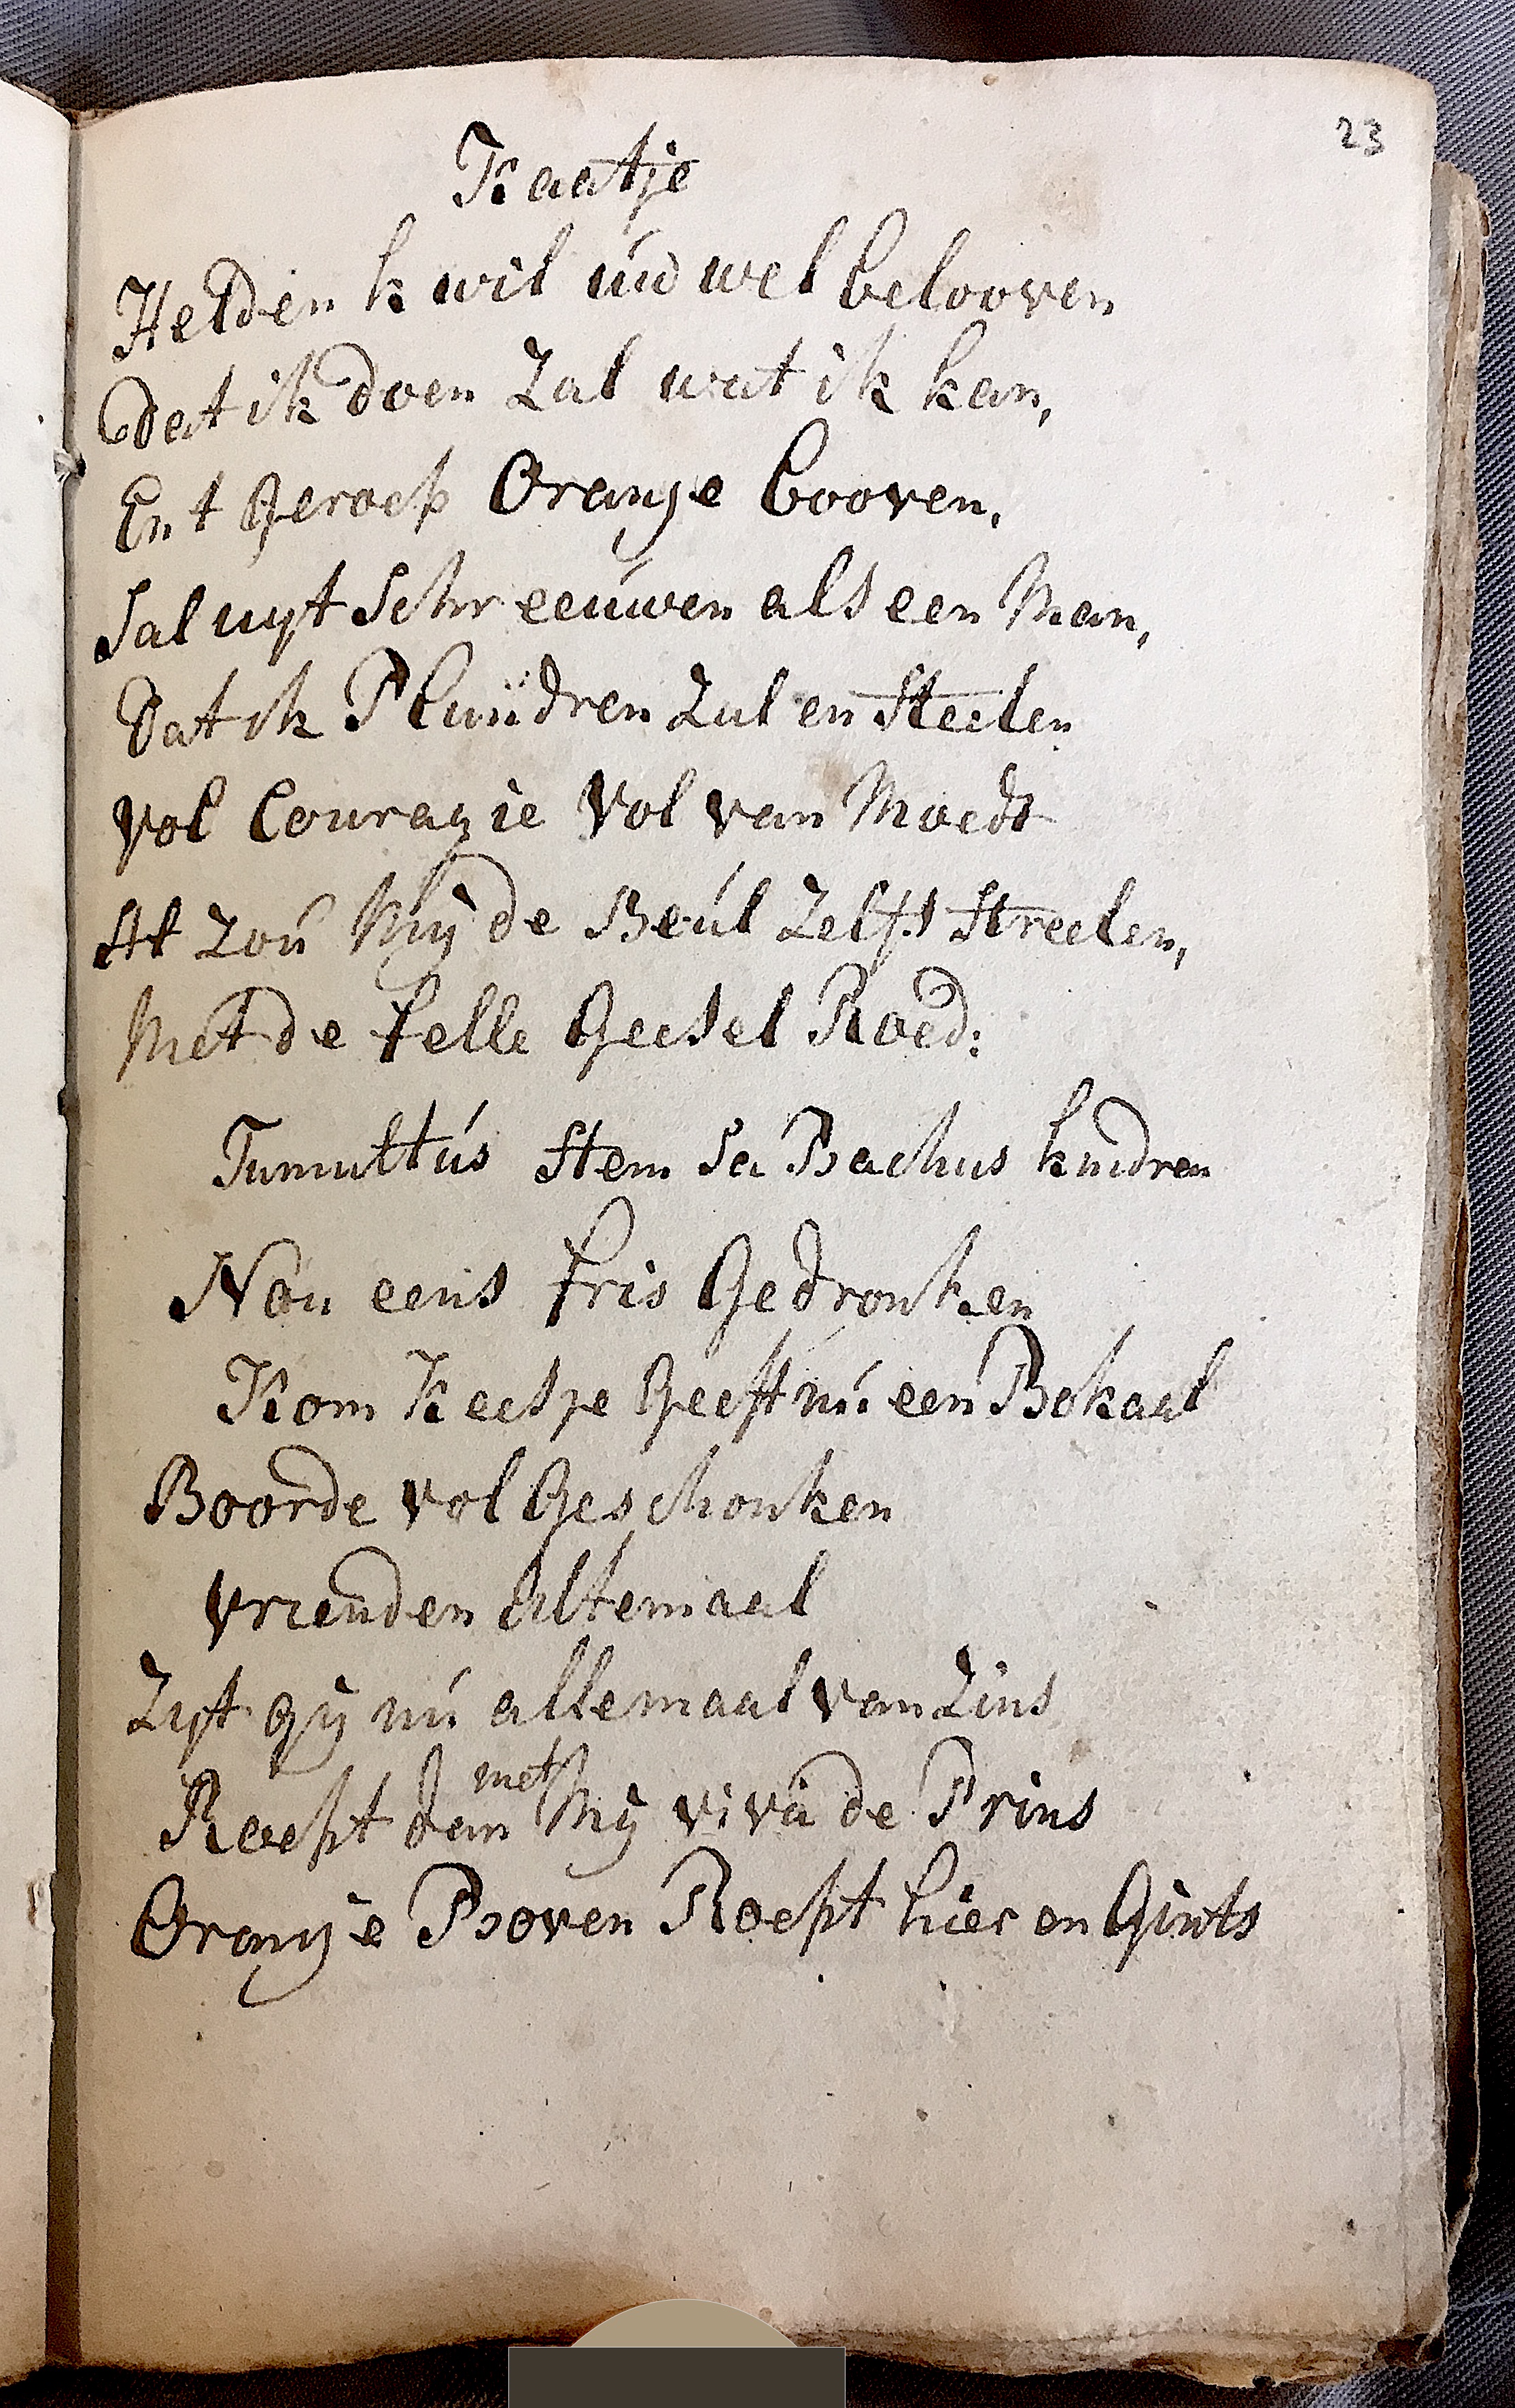 23
Kaatje
Helden k wil uw wel belooven
Dat ik doen Zal wat ik kan,
En t Geroep Oranje booven,
Sal uyt Schreeuwen als een Man,
Dat ik Plundren Zal en Steelen
Vol Couragie Vol van Moedt
Al zou Mij de Beul Zelfs Streelen,
Met de felle Geesel Roed:
Tumultus Stem Sa Bachus kindren
Nou eens fris Gedronken
Kom Keesje Geeft nu een Bokaal
Boorde vol Geschonken
Vrienden Altemaal
Zyt gij nu allemaal van Zins
Roept dan met Mij viva de Prins
Oranje Boven Roept hier en Gints